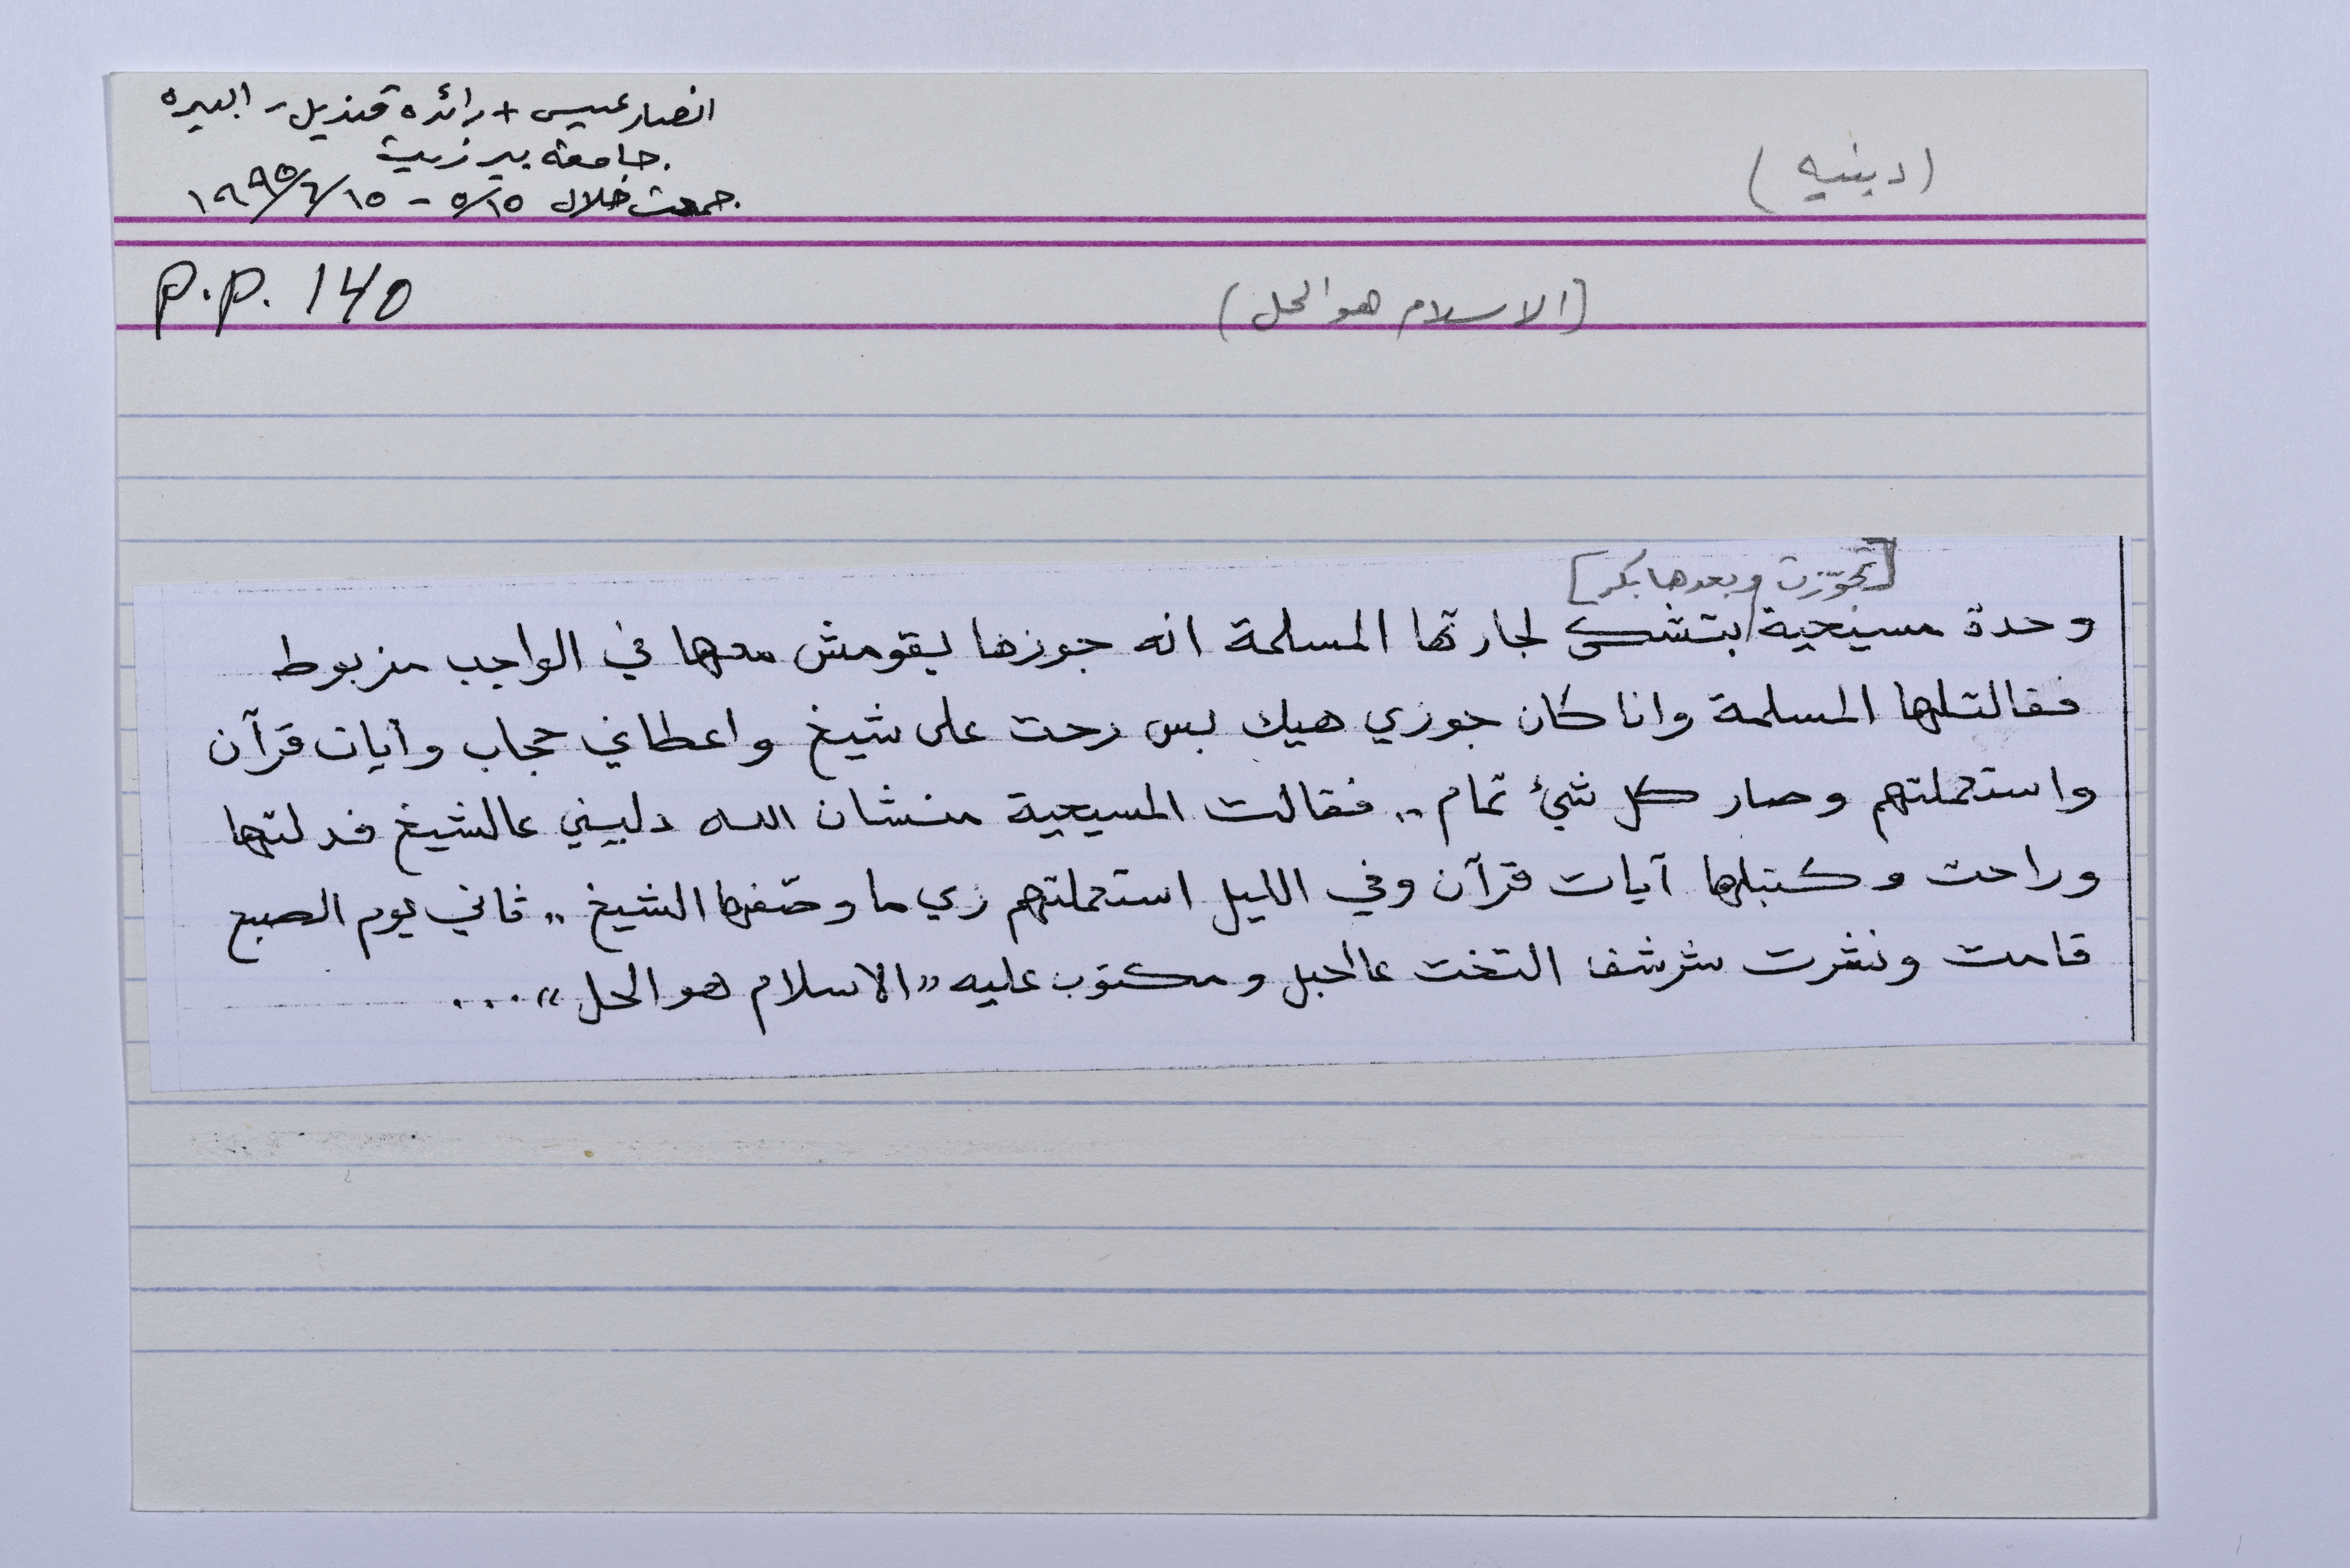 (دينيه)
انصار عيسى + رائده قنديل - البيره
جامعة بير زيت
جمعت خلال ٥/١٥ - ١٩٩٥/٦/١٥
P.P. 140
(الاسلام هو الحل)
[تجوّزت وبعدها بكر]
وحدة مسيحية بتشكي لجارتها المسلمة انه جوزها بقومش معها في الواجب مزبوط
فقالتلها المسلمة وانا كان جوزي هيك بس رحت على شيخ واعطاني حجاب وآيات قرآن
واستعملتهم وصار كل شيئ تمام .. فقالت المسيحية منشان الله دليني عالشيخ فدلتها
وراحت وكتبلها آيات قرآن وفي الليل استعملتهم زي ما وصّفلها الشيخ .. ثاني يوم الصبح
قامت ونشرت شرشف التخت عالحبل ومكتوب عليه "الاسلام هو الحل" ...